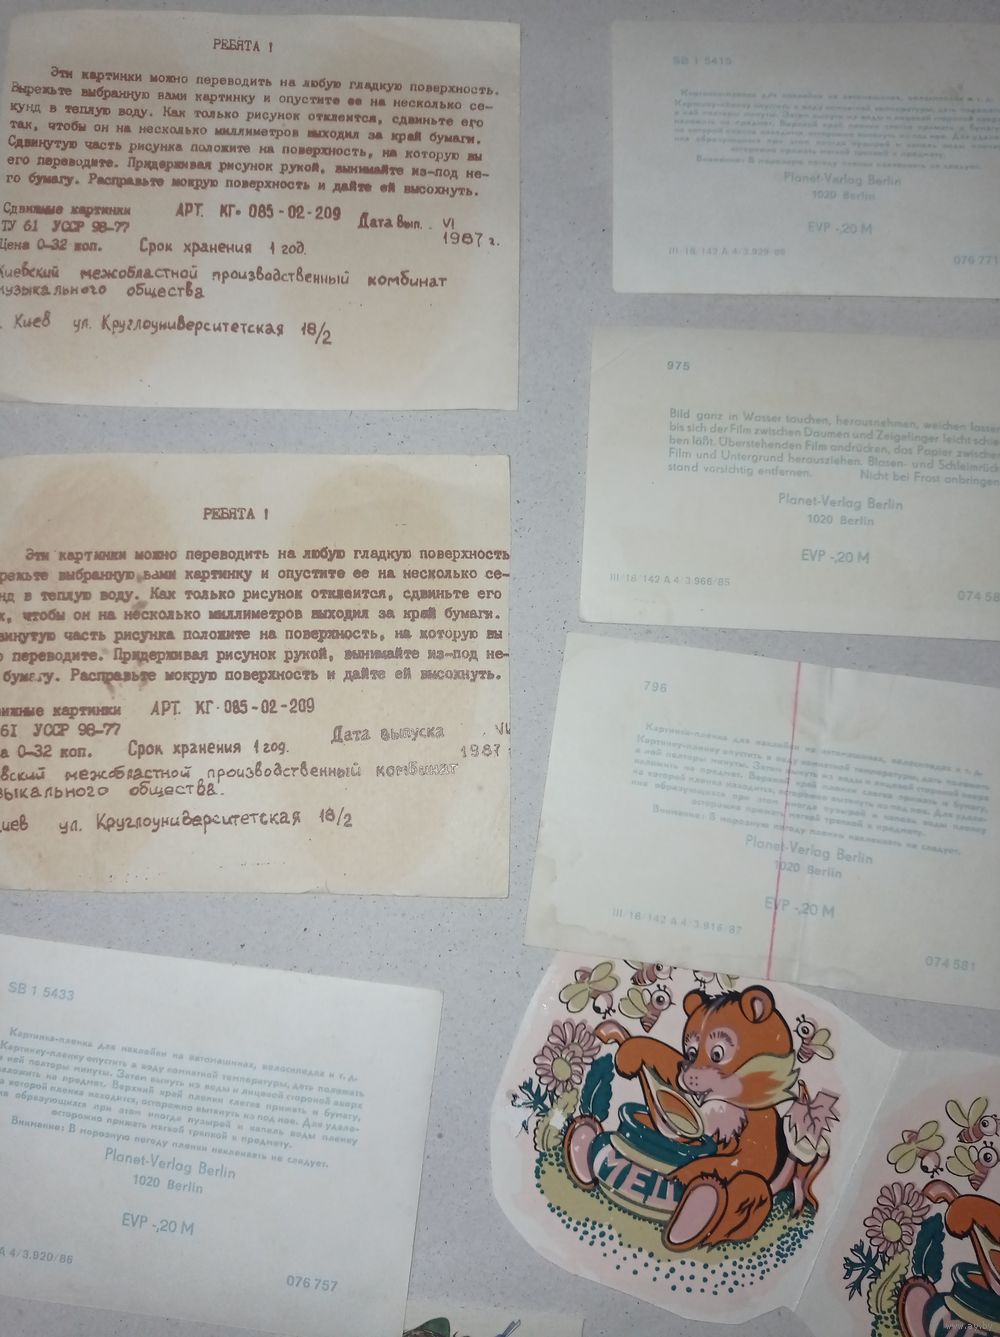 РЕБЯТА !
Эти картинки можно переводить на любую гладкую поверхность.
Вырежьте выбранную вами картинку и опустите ее на несколько се-
кунд в теплую воду. Как только рисунок отклеится, сдвиньте его
так, чтобы он на несколько миллиметров выходил за край бумаги.
Сдвинутую часть рисунка положите на поверхность, на которую вы
его переводите. Придерживая рисунок рукой, вынимайте из-под не-
го бумагу. Расправьте мокрую поверхность и дайте ей высохнуть.
Сдвижные картинки АРТ. КГ· 085-02-209 Дата вып. VI
ТУ 61 УССР 98-77 1987 г.
Цена 0-32 коп. Срок хранения 1 год.
Киевский межобластной производственный комбинат
музыкального общества
. Киев ул. Круглоуниверситетская 18/2
РЕБЯТА !
Эти картинки можно переводить на любую гладкую поверхность
режьте выбранную вами картинку и опустите ее на несколько се-
нд в теплую воду. Как только рисунок отклеится, сдвиньте его
к, чтобы он на несколько миллиметров выходил за край бумаги.
винутую часть рисунка положите на поверхность, на которую вы
о переводите. Придерживая рисунок рукой, вынимайте из-под не-
бумагу. Расправьте мокрую поверхность и дайте ей высохнуть.
ижные картинки АРТ. КГ·085-02-209
61 УССР 98-77 Дата выпуска VI
а 0-32 коп. Срок хранения 1 год. 1987
вский межобластной производственный комбинат
зыкального общества.
иев ул. Круглоуниверситетская 18/2
SB 1 5433
Картинка-пленка для наклейки на автомашинах, велосипедах и т. д.
Картинку-пленку опустить в воду комнатной температуры, дать полежать
в ней полторы минуты. Затем вынуть из воды и лицевой стороной вверх
наложить на предмет. Верхний край пленки слегка прижать и бумагу,
на которой пленка находится, осторожно вытянуть из под нее. Для удале-
ния образующихся при этом иногда пузырей и капель воды пленку
осторожно прижать мягкой тряпкой к предмету.
Внимание: В морозную погоду пленки наклеивать не следует.
Planet-Verlag Berlin
1020 Berlin
EVP -,20 M
A 4/3.920/86
076 757
SB 1 5415
Картинка-пленка для наклейки на автомашинах, велосипедах и т. д.
Внимание: В морозную погоду пленки наклеивать не следует.
Planet-Verlag Berlin
1020 Berlin
EVP -,20 M
III/18/142 A 4/3.929/86
076 771
975
Bild ganz in Wasser tauchen, herausnehmen, weichen lassen
bis sich der Film zwischen Daumen und Zeigefinger leicht schie-
ben läßt. Überstehenden Film andrücken, das Papier zwischen
Film und Untergrund herausziehen. Blasen- und Schleimrück-
stand vorsichtig entfernen. Nicht bei Frost anbringen
Planet-Verlag Berlin
1020 Berlin
EVP -,20 M
III/18/142 A 4/3.966/85
074 58
796
Картинка-пленка для наклейки на автомашинах, велосипедах и т. д.
Картинку-пленку опустить в воду комнатной температуры, дать полежать
в ней полторы минуты. Затем вынуть из воды и лицевой стороной вверх
наложить на предмет. Верхний край пленки слегка прижать и бумагу,
на которой пленка находится, осторожно вытянуть из под нее. Для удале-
ния образующихся при этом иногда пузырей и капель воды пленку
осторожно прижать мягкой тряпкой к предмету.
Внимание: В морозную погоду пленки наклеивать не следует.
Planet-Verlag Berlin
1020 Berlin
EVP -,20 M
III/18/142 A 4/3.916/87
074 581
МЕД
www.av.by